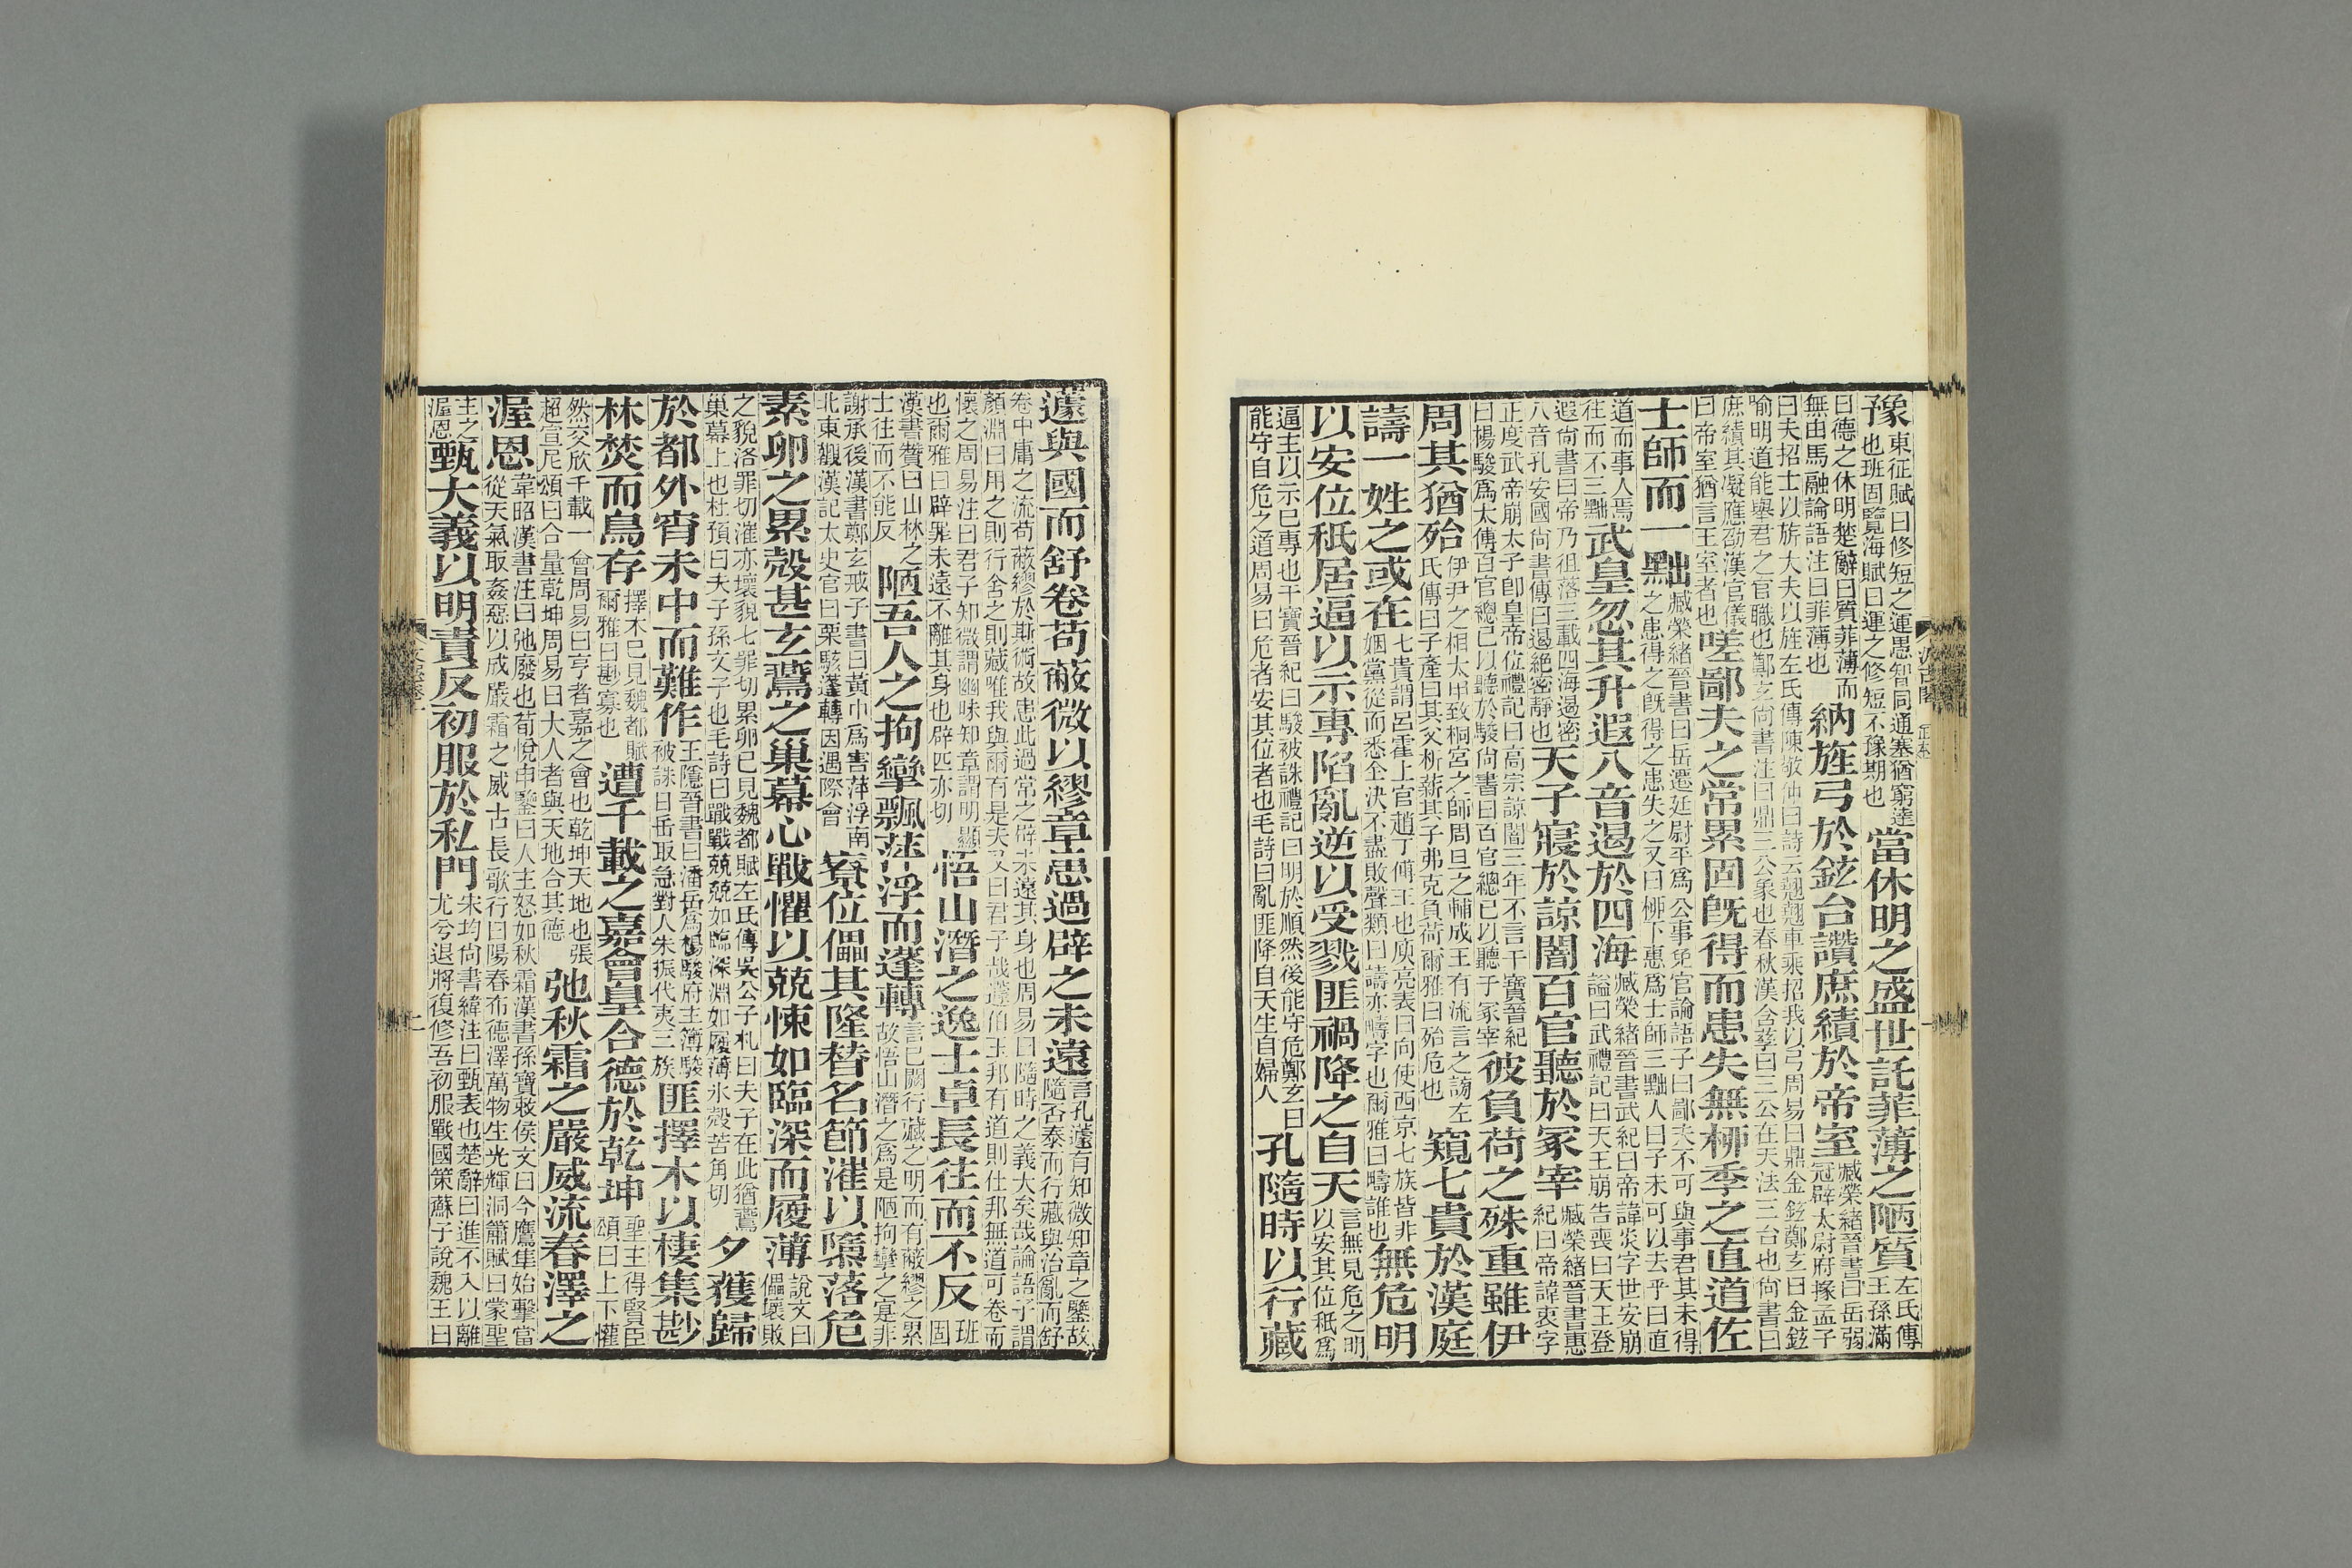 豫東征賦曰修短之運愚智同通塞猶窮達也班固覽海賦曰運之修短不豫期也當休明之盛世託菲薄之陋質左氏傳王孫滿
曰德之休明楚辭曰質菲薄而無由馬融論語注曰菲薄也納旌弓於鉉台讚庶績於帝室臧榮緒晉書曰岳弱冠辟太尉府掾孟子
曰夫招士以旂大夫以旌左氏傳陳敬仲曰詩云翹翹車乘招我以弓周易曰鼎金鉉鄭玄曰金鉉喻明道能舉君之官職也鄭玄尚書注曰鼎三公象也春秋漢含孳曰三公在天法三台也尚書曰
庶績其凝應劭漢官儀曰帝室猶言王室者也嗟鄙夫之常累固旣得而患失無柳季之直道佐
士師而一黜臧榮緒晉書曰岳遷廷尉平爲公事免官論語子曰鄙夫不可與事君其未得之患得之旣得之患失之又曰柳下惠爲士師三黜人曰子未可以去乎曰直
道而事人焉往而不三黜武皇忽其升遐八音遏於四海臧榮緒晉書武紀曰帝諱炎字世安崩諡曰武禮記曰天王崩告喪曰天王登
遐尚書曰帝乃徂落三載四海遏密八音孔安國尚書傳曰遏絕密靜也天子寢於諒闇百官聽於冢宰臧榮緒晉書惠紀曰帝諱衷字
正度武帝崩太子卽皇帝位禮記曰高宗諒闇三年不言干寶晉紀曰楊駿爲太傅百官總己以聽於駿尚書曰百官總己以聽于冢宰彼負荷之殊重雖伊
周其猶殆伊尹之相太甲致桐宮之師周旦之輔成王有流言之謗左氏傳曰子產曰其父析薪其子弗克負荷爾雅曰殆危也窺七貴於漢庭
譸一姓之或在七貴謂呂霍上官趙丁傅王也庾亮表曰向使西京七族皆非姻黨從而悉全決不盡敗聲類曰譸亦疇字也爾雅曰疇誰也無危明
以安位秖居逼以示專陷亂逆以受戮匪禍降之自天言無見危之明以安其位秖爲
逼主以示己專也干寶晉紀曰駿被誅禮記曰明於順然後能守危鄭玄曰能守自危之道周易曰危者安其位者也毛詩曰亂匪降自天生自婦人孔隨時以行藏
蘧與國而舒卷苟蔽微以繆章患過辟之未遠言孔蘧有知微知章之鑒故隨否泰而行藏與治亂而舒
卷中庸之流苟蔽繆於斯術故患此過常之辟未遠其身也周易曰隨時之義大矣哉論語子謂顏淵曰用之則行舍之則藏唯我與爾有是夫又曰君子哉蘧伯玉邦有道則仕邦無道可卷而
懷之周易注曰君子知微謂幽昧知章謂明顯也爾雅曰辟罪未遠不離其身也辟匹亦切悟山潛之逸士卓長往而不反班固
漢書贊曰山林之士往而不能反陋吾人之拘攣飄萍浮而蓬轉言已闕行藏之明而有蔽繆之累故悟山潛之爲是陋拘攣之寔非
謝承後漢書鄭玄戒子書曰黃巾爲害萍浮南北東觀漢記太史官曰栗駭蓬轉因遇際會寮位儡其隆替名節漼以隳落危
素卵之累殼甚玄鷰之巢幕心戰懼以兢悚如臨深而履薄說文曰儡壞敗
之貌洛罪切漼亦壞貌七罪切累卵已見魏都賦左氏傳吳公子札曰夫子在此猶鷰巢幕上也杜預曰夫子孫文子也毛詩曰戰戰兢兢如臨深淵如履薄冰殼苦角切夕獲歸
於都外宵未中而難作王隱晉書曰潘岳爲楊駿府主簿駿被誅日岳取急對人朱振代夷三族匪擇木以棲集尠
林焚而鳥存擇木已見魏都賦爾雅曰尠寡也遭千載之嘉會皇合德於乾坤聖主得賢臣頌曰上下懽
然交欣千載一會周易曰亨者嘉之會也乾坤天地也張超宣尼頌曰合量乾坤周易曰大人者與天地合其德弛秋霜之嚴威流春澤之
渥恩韋昭漢書注曰弛廢也荀悅申鑒曰人主怒如秋霜漢書孫寶敕侯文曰今鷹隼始擊當從天氣取姦惡以成嚴霜之威古長歌行曰陽春布德澤萬物生光輝洞簫賦曰蒙聖
主之渥恩甄大義以明責反初服於私門宋均尚書緯注曰甄表也楚辭曰進不入以離尤兮退將復修吾初服戰國策蘇子說魏王曰